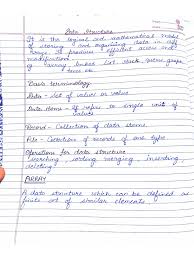 Data Structure
It is the logical and mathematical model
of storing and organizing data in
to produce efficient access and
modification.
eg array, linked list stack, queue graph
trees etc.
Basic terminology
Data - Set of value or values
Data Items - It refers to single unit of
values
Record - Collection of data items.
File - Collection of records of one type
Operations for data structure
searching, sorting merging, inserting,
deleting
ARRAY
A data structure which can be defined as
finite set of similar elements.